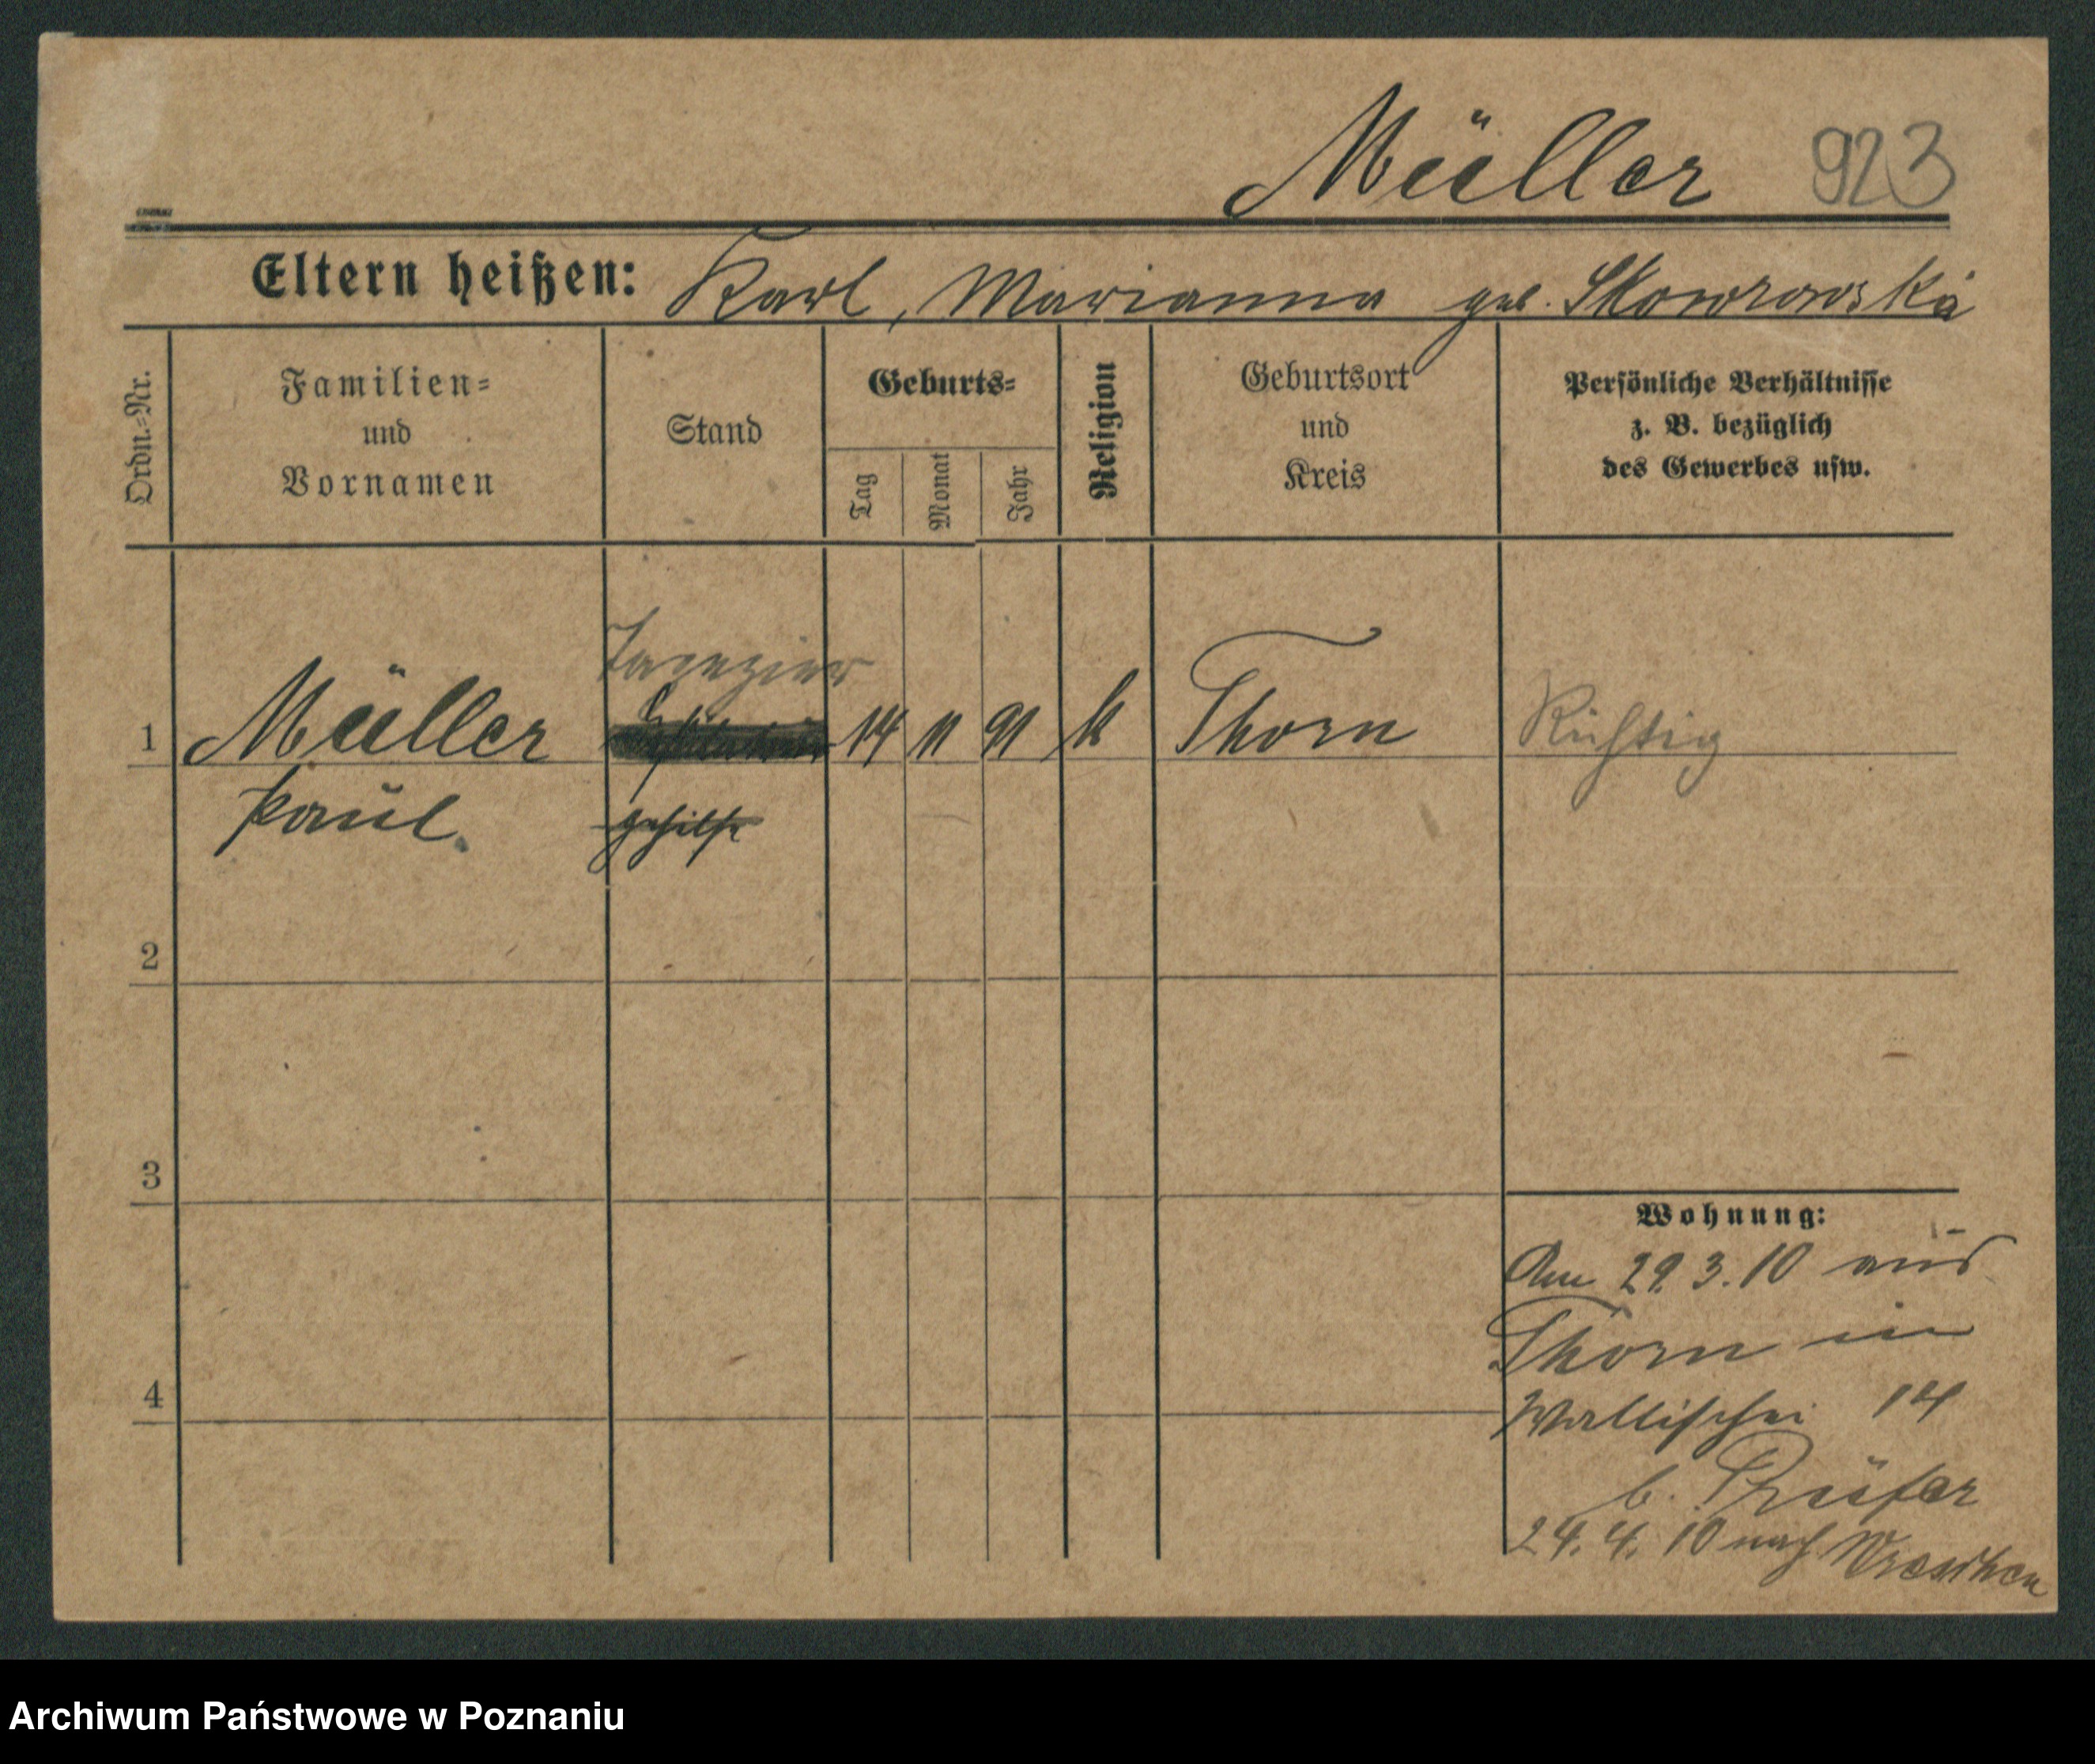 Müller 923
Eltern heißen: Karl, Marianna geb. Skowrowska
Ordn.-Nr.
Familien-
und
Vornamen
Stand
Geburts-
Tag
Monat
Jahr
Religion
Geburtsort
und
Kreis
Persönliche Verhältnisse
z. B. bezüglich
des Gewerbes usw.
Tapezier
1 Müller 14 11 91 k Thorn Richtig
Paul
gehilfe
2
3
Wohnung:
Am 29.3.10 aus
Thorn in
4
Wallischei 14
b. Prüfer
24.4.10 nach Wreschen
Archiwum Państwowe w Poznaniu